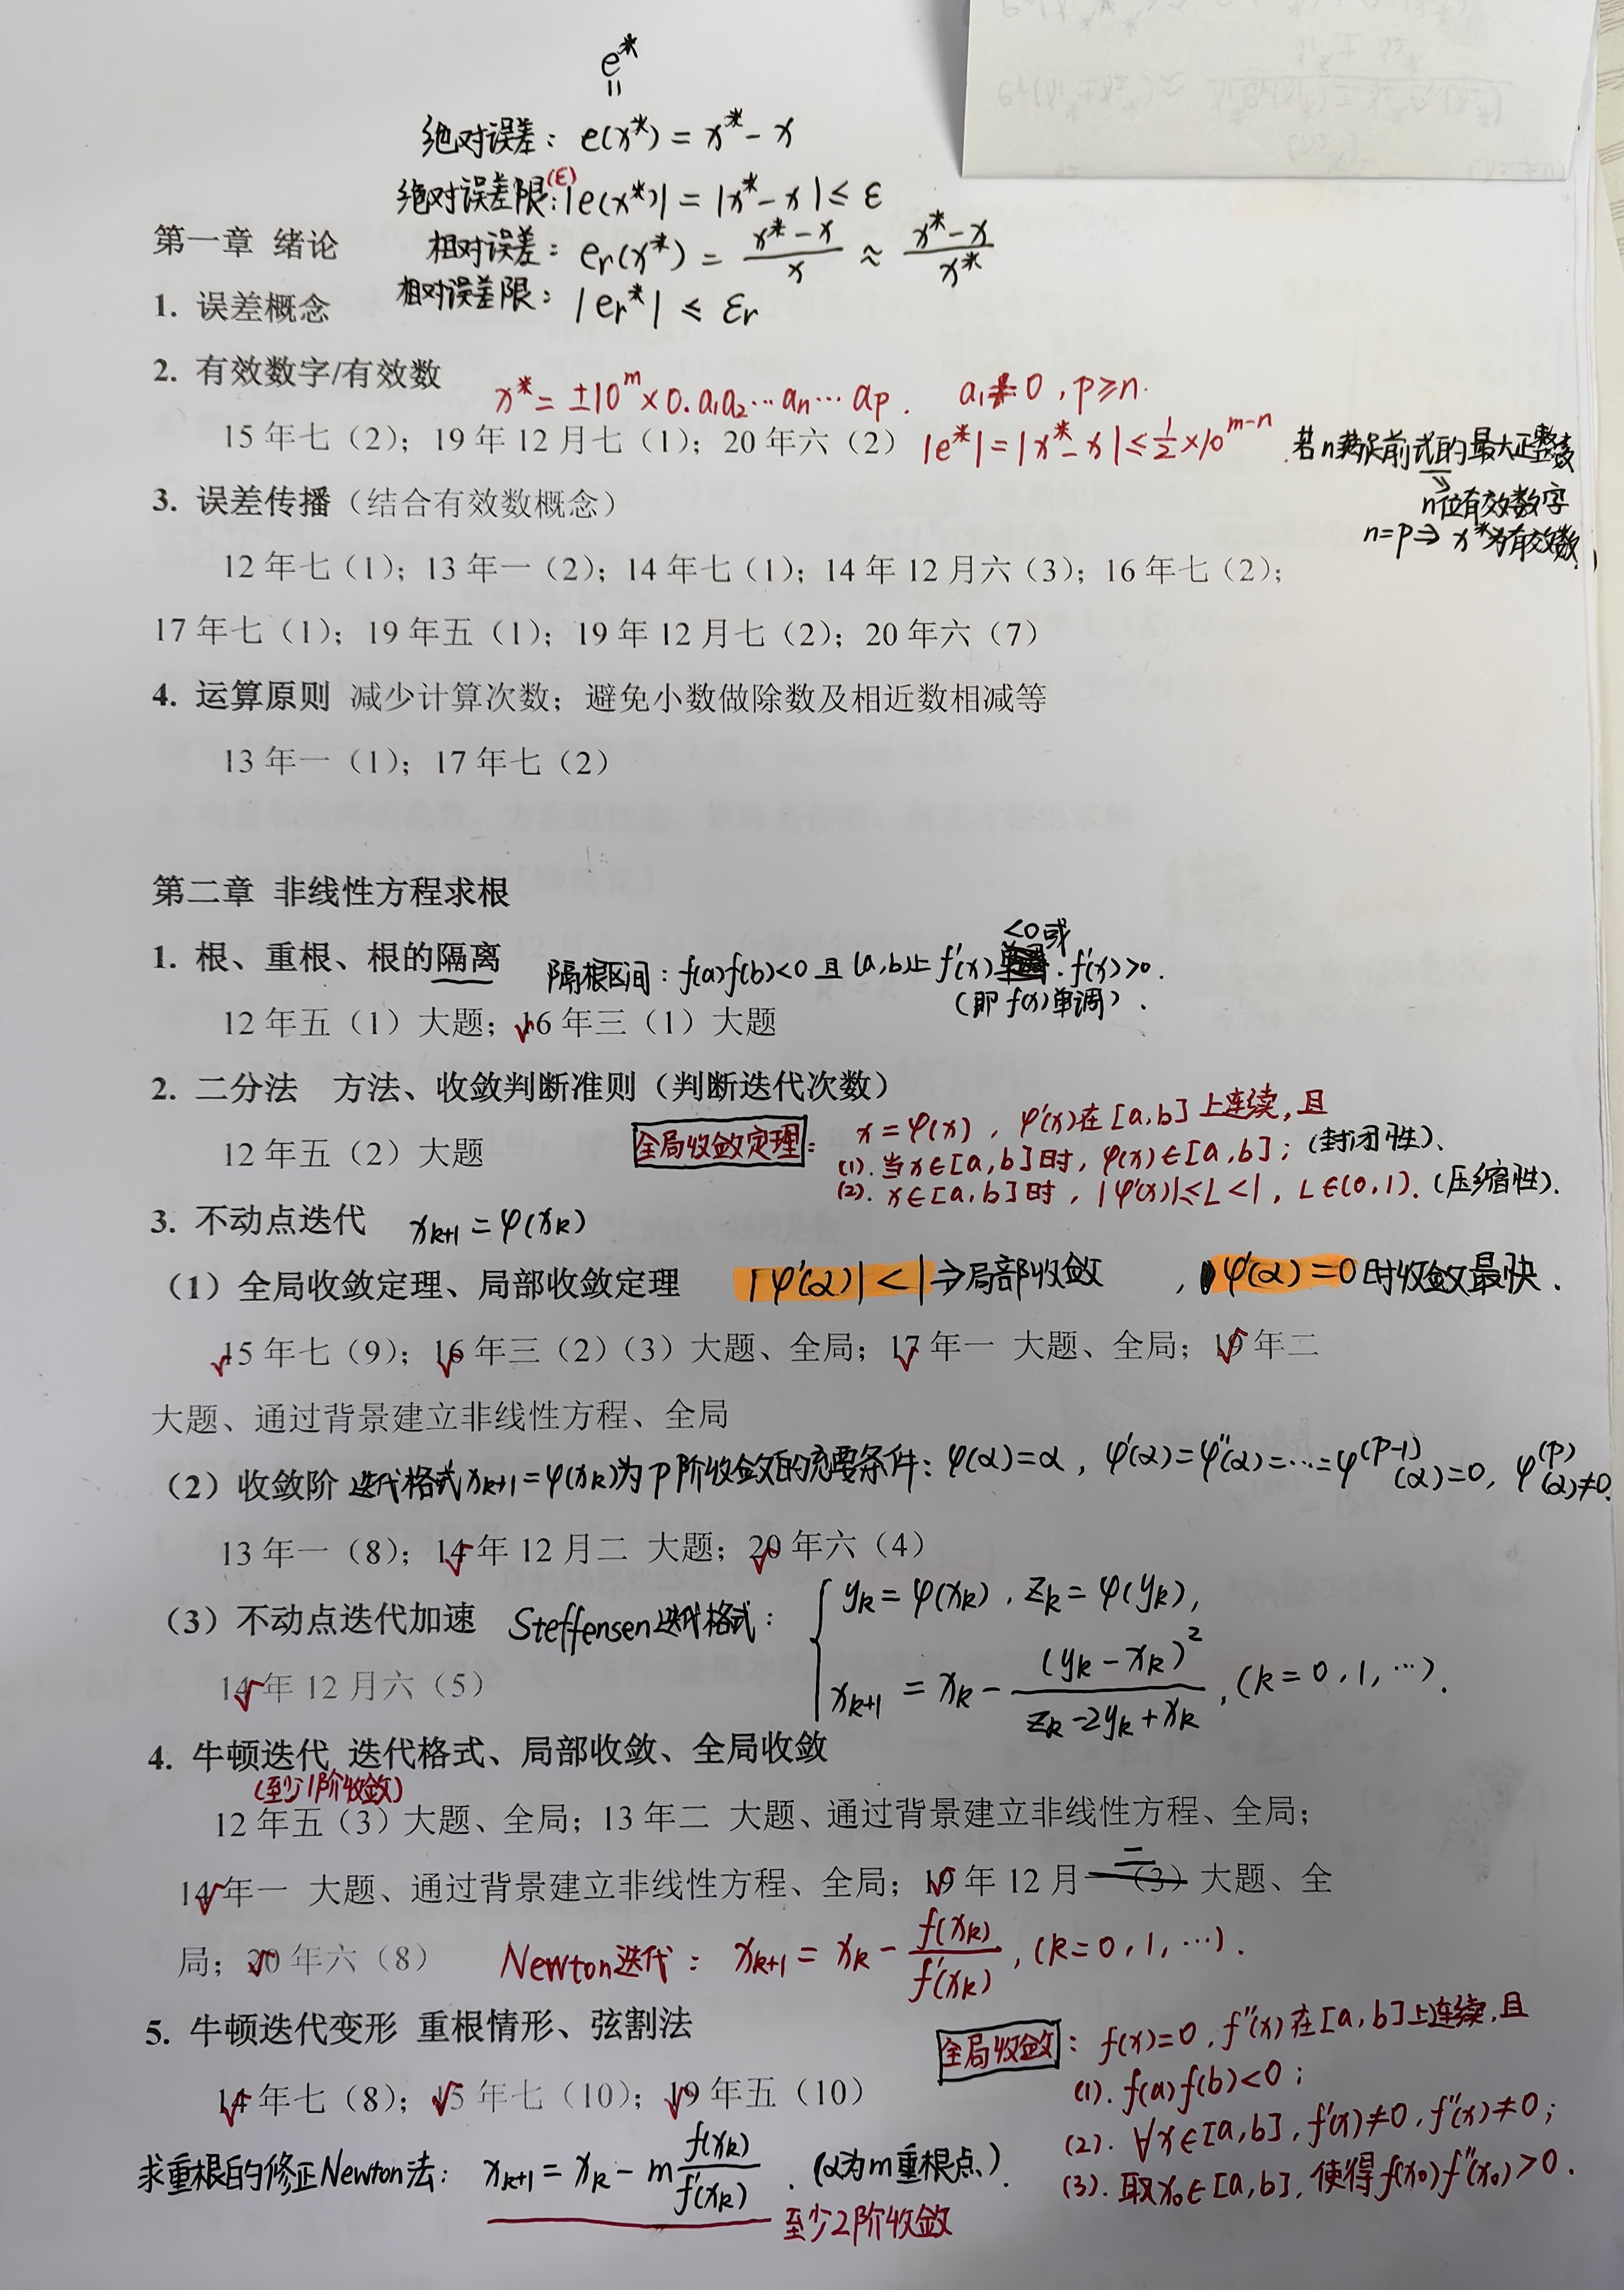 e*
=
绝对误差：e(x*) = x* - x
绝对误差限(ε)：|e(x*)| = |x* - x| ≤ ε
第一章 绪论
相对误差：er(x*) = (x* - x)/x ≈ (x* - x)/x*
1. 误差概念
相对误差限：|er*| ≤ εr
2. 有效数字/有效数
x* = ±10^m × 0.a₁a₂…an…ap. a₁≠0, p≥n.
15 年七（2）；19 年 12 月七（1）；20 年六（2）
|e*| = |x* - x| ≤ 1/2 × 10^(m-n)
若n满足前式的最大正整数
⇒ n位有效数字
n=p ⇒ x*为有效数.
3. 误差传播（结合有效数概念）
12 年七（1）；13 年一（2）；14 年七（1）；14 年 12 月六（3）；16 年七（2）；
17 年七（1）；19 年五（1）；19 年 12 月七（2）；20 年六（7）
4. 运算原则 减少计算次数；避免小数做除数及相近数相减等
13 年一（1）；17 年七（2）
第二章 非线性方程求根
1. 根、重根、根的隔离
隔根区间：f(a)f(b)<0 且 (a,b)上 f'(x) <0或 f'(x)>0.
（即 f(x)单调）.
12 年五（1）大题；16 年三（1）大题
2. 二分法 方法、收敛判断准则（判断迭代次数）
12 年五（2）大题
全局收敛定理： x = φ(x), φ'(x)在[a,b]上连续,且
(1). 当x∈[a,b]时, φ(x)∈[a,b]; (封闭性).
(2). x∈[a,b]时, |φ'(x)|≤L<1, L∈(0,1). (压缩性).
3. 不动点迭代 xk+1 = φ(xk)
（1）全局收敛定理、局部收敛定理 |φ'(α)|<1⇒局部收敛 , φ'(α)=0时收敛最快.
15 年七（9）；16 年三（2）（3）大题、全局；17 年一 大题、全局；19 年二
大题、通过背景建立非线性方程、全局
（2）收敛阶 迭代格式xk+1=φ(xk)为p阶收敛的充要条件：φ(α)=α, φ'(α)=φ''(α)=…=φ^(p-1)(α)=0, φ^(p)(α)≠0.
13 年一（8）；14 年 12 月二 大题；20 年六（4）
（3）不动点迭代加速 Steffensen迭代格式： { yk = φ(xk), zk = φ(yk),
xk+1 = xk - (yk - xk)²/(zk - 2yk + xk), (k=0,1,…).
14 年 12 月六（5）
4. 牛顿迭代 迭代格式、局部收敛、全局收敛
(至少1阶收敛)
12 年五（3）大题、全局；13 年二 大题、通过背景建立非线性方程、全局；
14 年一 大题、通过背景建立非线性方程、全局；19 年 12 月二（3）大题、全
局；20 年六（8）
Newton迭代： xk+1 = xk - f(xk)/f'(xk), (k=0,1,…).
5. 牛顿迭代变形 重根情形、弦割法
14 年七（8）；15 年七（10）；19 年五（10）
全局收敛： f(x)=0, f''(x)在[a,b]上连续,且
(1). f(a)f(b)<0;
(2). ∀x∈[a,b], f'(x)≠0, f''(x)≠0;
(3). 取x₀∈[a,b], 使得f(x₀)f''(x₀)>0.
求重根的修正Newton法： xk+1 = xk - m f(xk)/f'(xk). (α为m重根点).
至少2阶收敛